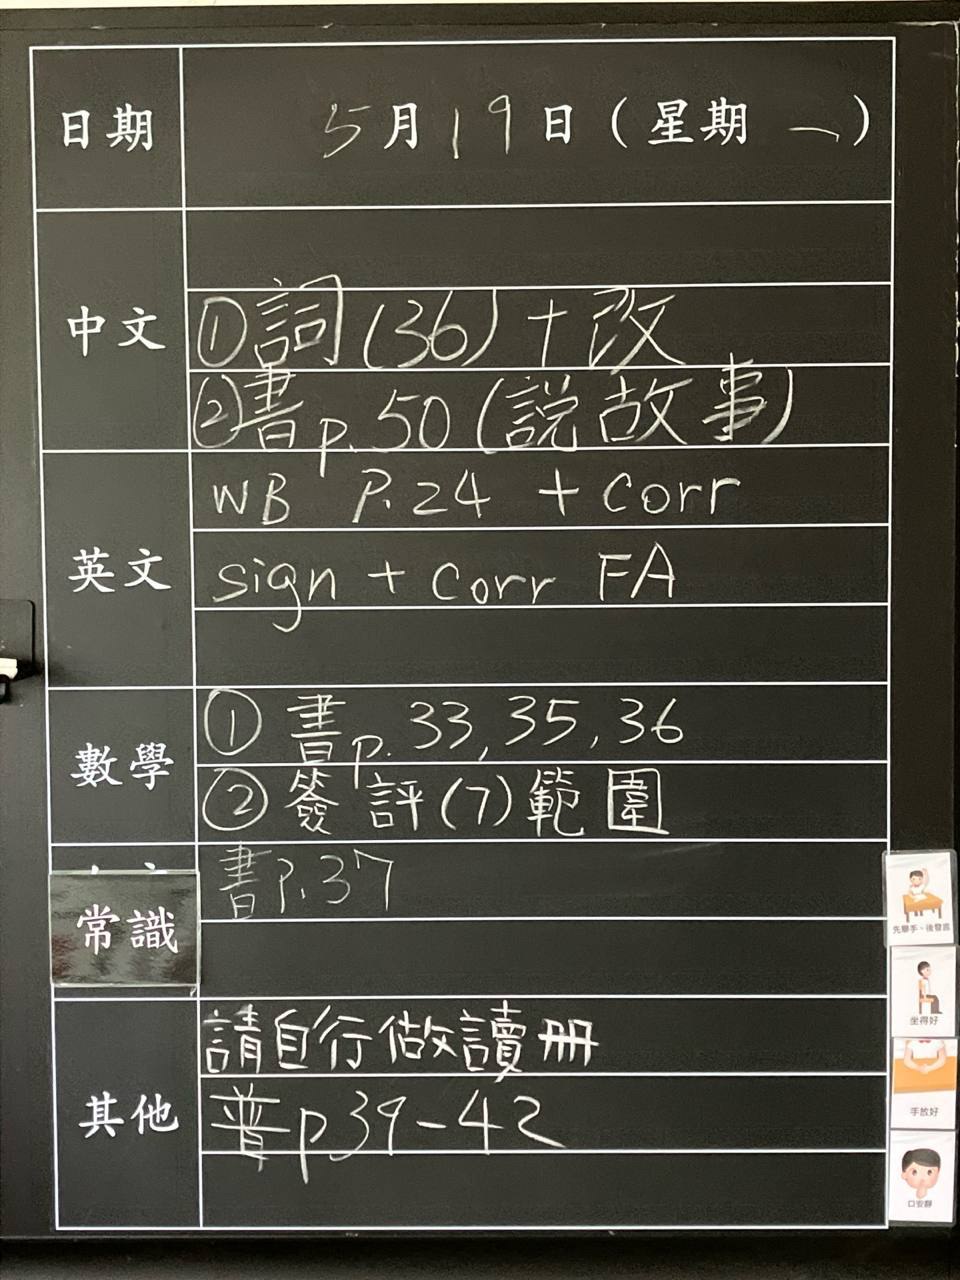 日期 5月19日(星期一)
中文
①詞(36)+改
②書p.50(説故事)
英文
WB P.24 + corr
sign + corr FA
數學
① 書p.33,35,36
② 簽評(7)範圍
常識
書P.37
其他
請自行做讀冊
普p39-42
先舉手、後發言
坐得好
手放好
口安靜